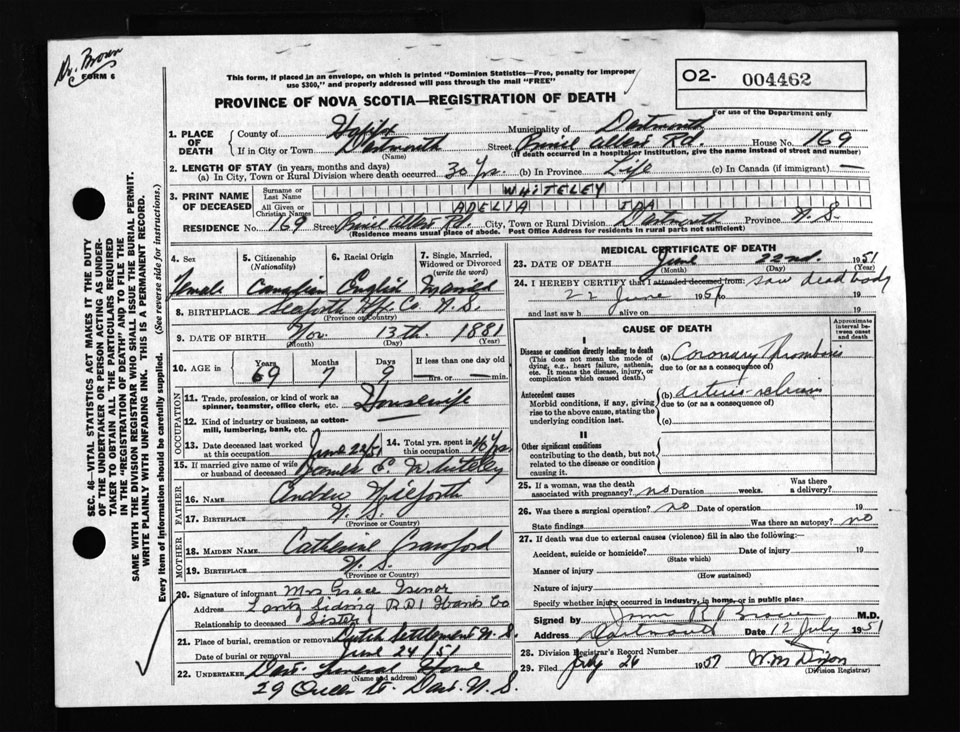 Dr. Brown
FORM 6
This form, if placed in an envelope, on which is printed "Dominion Statistics—Free, penalty for improper
use $300," and properly addressed will pass through the mail "FREE"
O2- 004462
For use of the Department only
PROVINCE OF NOVA SCOTIA—REGISTRATION OF DEATH
1. PLACE OF DEATH
County of Halifax Municipality of Dartmouth
If in City or Town Dartmouth Street Prince Albert Rd. House No. 169
(Name) (If death occurred in a hospital or institution, give the name instead of street and number)
2. LENGTH OF STAY (in years, months and days)
(a) In City, Town or Rural Division where death occurred 30 Yrs. (b) in Province Life (c) In Canada (if immigrant) —
3. PRINT NAME OF DECEASED
Surname or Last Name WHITELEY
All Given or Christian Names ADELIA IDA
RESIDENCE No. 169 Street Prince Albert Rd. City, Town or Rural Division Dartmouth Province N.S.
(Residence means usual place of abode. Post Office Address for residents in rural parts not sufficient)
4. Sex Female
5. Citizenship (Nationality) Canadian
6. Racial Origin English
7. Single, Married, Widowed or Divorced (write the word) Married
8. BIRTHPLACE Seaforth Hfx Co N.S.
(Province or Country)
9. DATE OF BIRTH Nov. 13th. 1881
(Month) (Day) (Year)
10. AGE in Years 69 Months 7 Days 9 If less than one day old — hrs. or — min.
OCCUPATION
11. Trade, profession, or kind of work as spinner, teamster, office clerk, etc. Housewife
12. Kind of industry or business, as cotton-mill, lumbering, bank, etc.
13. Date deceased last worked at this occupation June 22/51
14. Total yrs. spent in this occupation 46 Yrs.
15. If married give name of wife or husband of deceased James E. Whiteley
FATHER
16. NAME
17. BIRTHPLACE N.S.
(Province or Country)
MOTHER
18. MAIDEN NAME Catherine Crawford
19. BIRTHPLACE N.S.
(Province or Country)
20. Signature of informant Mrs Grace Isenor
Address Lantz Siding R.R.1 Hants Co
Relationship to deceased Sister
21. Place of burial, cremation or removal Dutch Settlement N.S.
Date of burial or removal June 24/51
22. UNDERTAKER Dart. Funeral Home
(Name and address)
29 Queen St. Dart. N.S.
MEDICAL CERTIFICATE OF DEATH
23. DATE OF DEATH June 22nd. 1951
(Month) (Day) (Year)
24. I HEREBY CERTIFY that I attended deceased from: saw dead body
22 June 1951 to 19
and last saw h alive on 19
CAUSE OF DEATH
Approximate interval between onset and death
I
Disease or condition directly leading to death
(This does not mean the mode of dying, e.g., heart failure, asthenia, etc. It means the disease, injury, or complication which caused death.)
(a) Coronary Thrombosis
due to (or as a consequence of)
Antecedent causes
Morbid conditions, if any, giving rise to the above cause, stating the underlying condition last.
(b) arterio-sclerosis
due to (or as a consequence of)
(c)
II
Other significant conditions
contributing to the death, but not related to the disease or condition causing it.
25. If a woman, was the death associated with pregnancy? no Duration weeks. Was there a delivery?
26. Was there a surgical operation? no Date of operation 19
State findings Was there an autopsy? no
27. If death was due to external causes (violence) fill in also the following:—
Accident, suicide or homicide? Date of injury 19
(State which)
Manner of injury
(How sustained)
Nature of injury
Specify whether injury occurred in industry, in home, or in public place
Signed by R Brown M.D.
Address Dartmouth Date 12 July 1951
28. Division Registrar's Record Number
29. Filed July 26 1951 W.M. Dixon
(Division Registrar)
SEC. 46—VITAL STATISTICS ACT MAKES IT THE DUTY
OF THE UNDERTAKER OR PERSON ACTING AS UNDER-
TAKER TO OBTAIN ALL THE PARTICULARS REQUIRED
IN THE "REGISTRATION OF DEATH" AND TO FILE THE
SAME WITH THE DIVISION REGISTRAR WHO SHALL ISSUE THE BURIAL PERMIT.
WRITE PLAINLY WITH UNFADING INK. THIS IS A PERMANENT RECORD.
Every item of information should be carefully supplied. (See reverse side for instructions.)